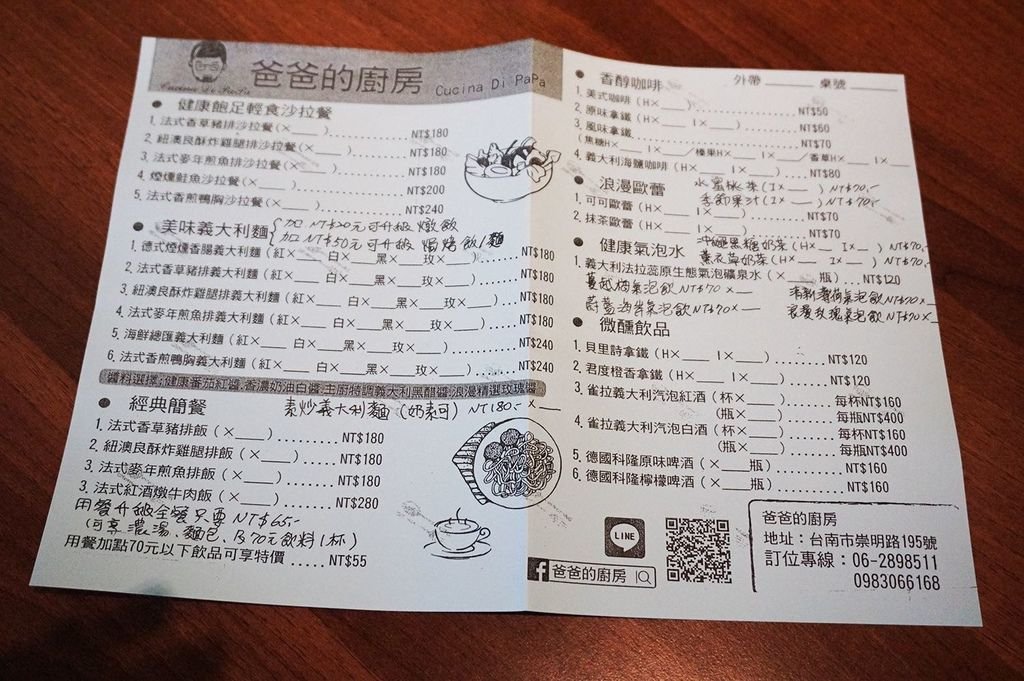 爸爸的廚房 Cucina Di PaPa
Cucina Di PaPa
● 健康飽足輕食沙拉餐
1. 法式香草豬排沙拉餐(×___)..........NT$180
2. 紐澳良酥炸雞腿排沙拉餐(×___)..........NT$180
3. 法式麥年煎魚排沙拉餐(×___)..........NT$180
4. 煙燻鮭魚沙拉餐(×___)..........NT$200
5. 法式香煎鴨胸沙拉餐(×___)..........NT$240
● 美味義大利麵 { 加NT$20元可升級 燉飯
加NT$50元可升級 焗烤飯/麵
1. 德式煙燻香腸義大利麵 (紅×___ 白×___黑×___玫×___)....NT$180
2. 法式香草豬排義大利麵 (紅×___ 白×___黑×___玫×___)....NT$180
3. 紐澳良酥炸雞腿排義大利麵 (紅×___ 白×___黑×___玫×___)....NT$180
4. 法式麥年煎魚排義大利麵 (紅×___ 白×___黑×___玫×___)....NT$180
5. 海鮮總匯義大利麵 (紅×___ 白×___黑×___玫×___)....NT$240
6. 法式香煎鴨胸義大利麵 (紅×___ 白×___黑×___玫×___)....NT$240
醬料選擇:健康番茄紅醬.香濃奶油白醬.主廚特調義大利黑醋醬.浪漫精選玫瑰醬
● 經典簡餐 素炒義大利麵(奶素可) NT180.- ×__
1. 法式香草豬排飯 (×___)........NT$180
2. 紐澳良酥炸雞腿排飯 (×___).....NT$180
3. 法式麥年煎魚排飯 (×___).....NT$180
3. 法式紅酒燉牛肉飯 (×___)......NT$280
用餐升級全餐只要NT$65.-
(可享濃湯、麵包、及70元飲料1杯)
用餐加點70元以下飲品可享特價 .....NT$55
● 香醇咖啡 外帶____ 桌號____
1. 美式咖啡 (H×___ I×___)..........NT$50
2. 原味拿鐵 (H×___ I×___)..........NT$60
3. 風味拿鐵..........NT$70
(焦糖H×___ I×___/榛果H×___ I×___/香草H×___ I×___
4. 義大利海鹽咖啡 (H×___ I×___)..........NT$80
● 浪漫歐蕾 水蜜桃茶(I×__)NT70.-
季節果汁(I×__)NT70.-
1. 可可歐蕾 (H×___ I×___)..........NT$70
2. 抹茶歐蕾 (H×___ I×___)..........NT$70
沖繩黑糖奶茶(H×__ I×__)NT$70.-
● 健康氣泡水 薰衣草奶茶(H×__ I×__)NT$70.-
1. 義大利法拉蕊原生態氣泡礦泉水 (×___瓶)....NT$120
蔓越梅氣泡飲NT$70×__ 清新薄荷氣泡飲NT$70×__
蔚藍海岸氣泡飲NT$70×__ 浪漫玫瑰氣泡飲NT$70×__
● 微醺飲品
1. 貝里詩拿鐵 (H×___ I×___)........NT$120
2. 君度橙香拿鐵 (H×___ I×___)........NT$120
3. 雀拉義大利汽泡紅酒 (杯×___)......每杯NT$160
(瓶×___)......每瓶NT$400
4. 雀拉義大利汽泡白酒 (杯×___)......每杯NT$160
(瓶×___)......每瓶NT$400
5. 德國科隆原味啤酒 (×___瓶)......NT$160
6. 德國科隆檸檬啤酒 (×___瓶)......NT$160
LINE
f 爸爸的廚房
爸爸的廚房
地址：台南市崇明路195號
訂位專線：06-2898511
0983066168